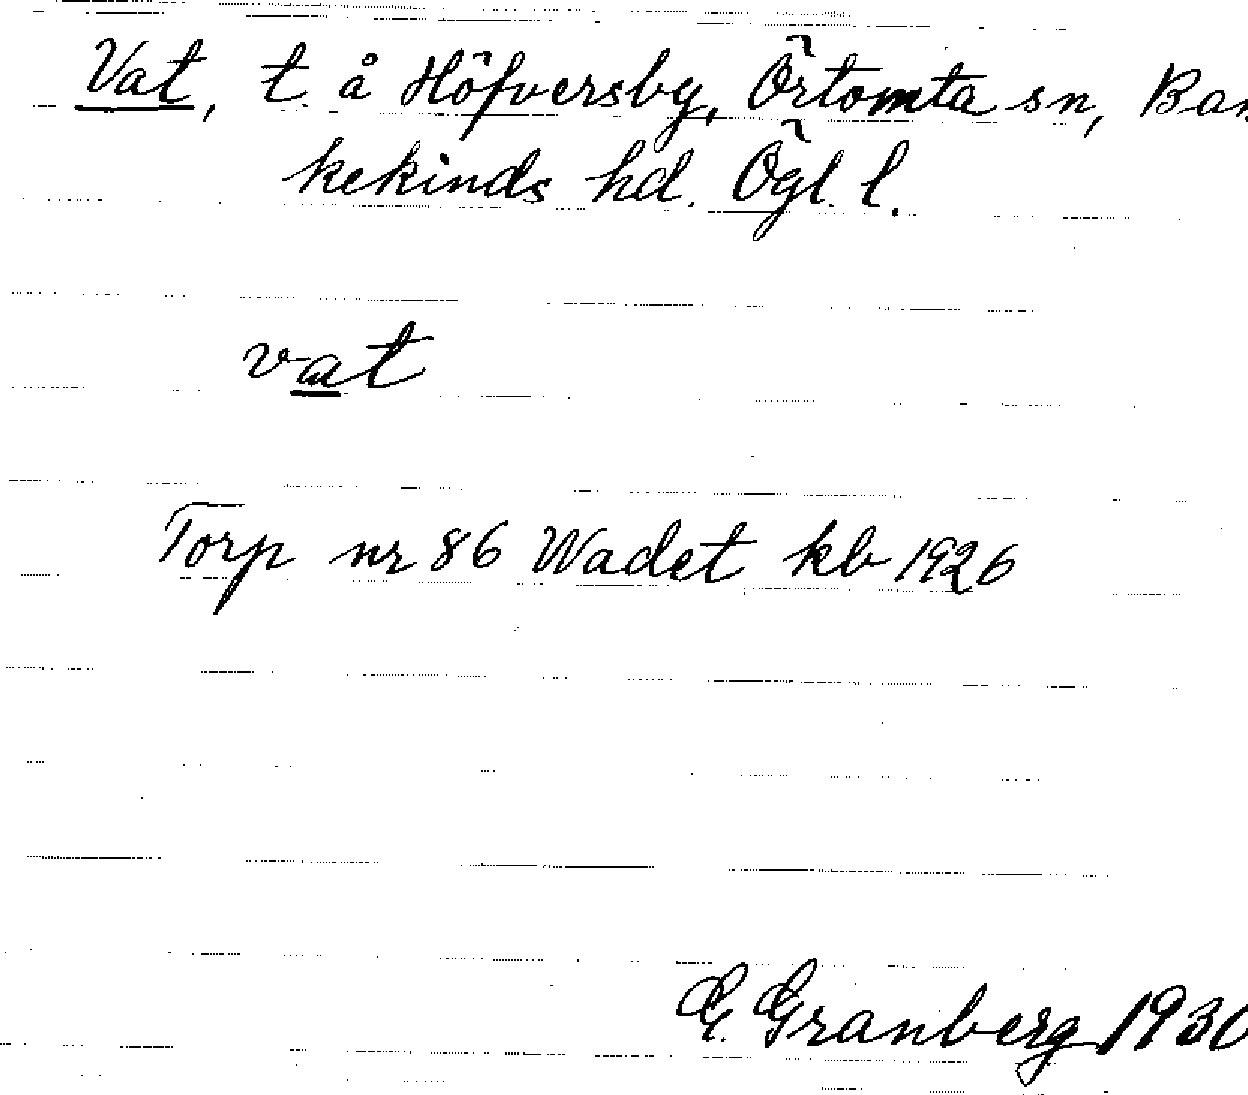 Vat, t. å Höfversby, Örtomta sn, Ban
kekinds hd. Ögl. l.
vat
Torp nr 86 Wadet kb 1926
G. Granberg 1930